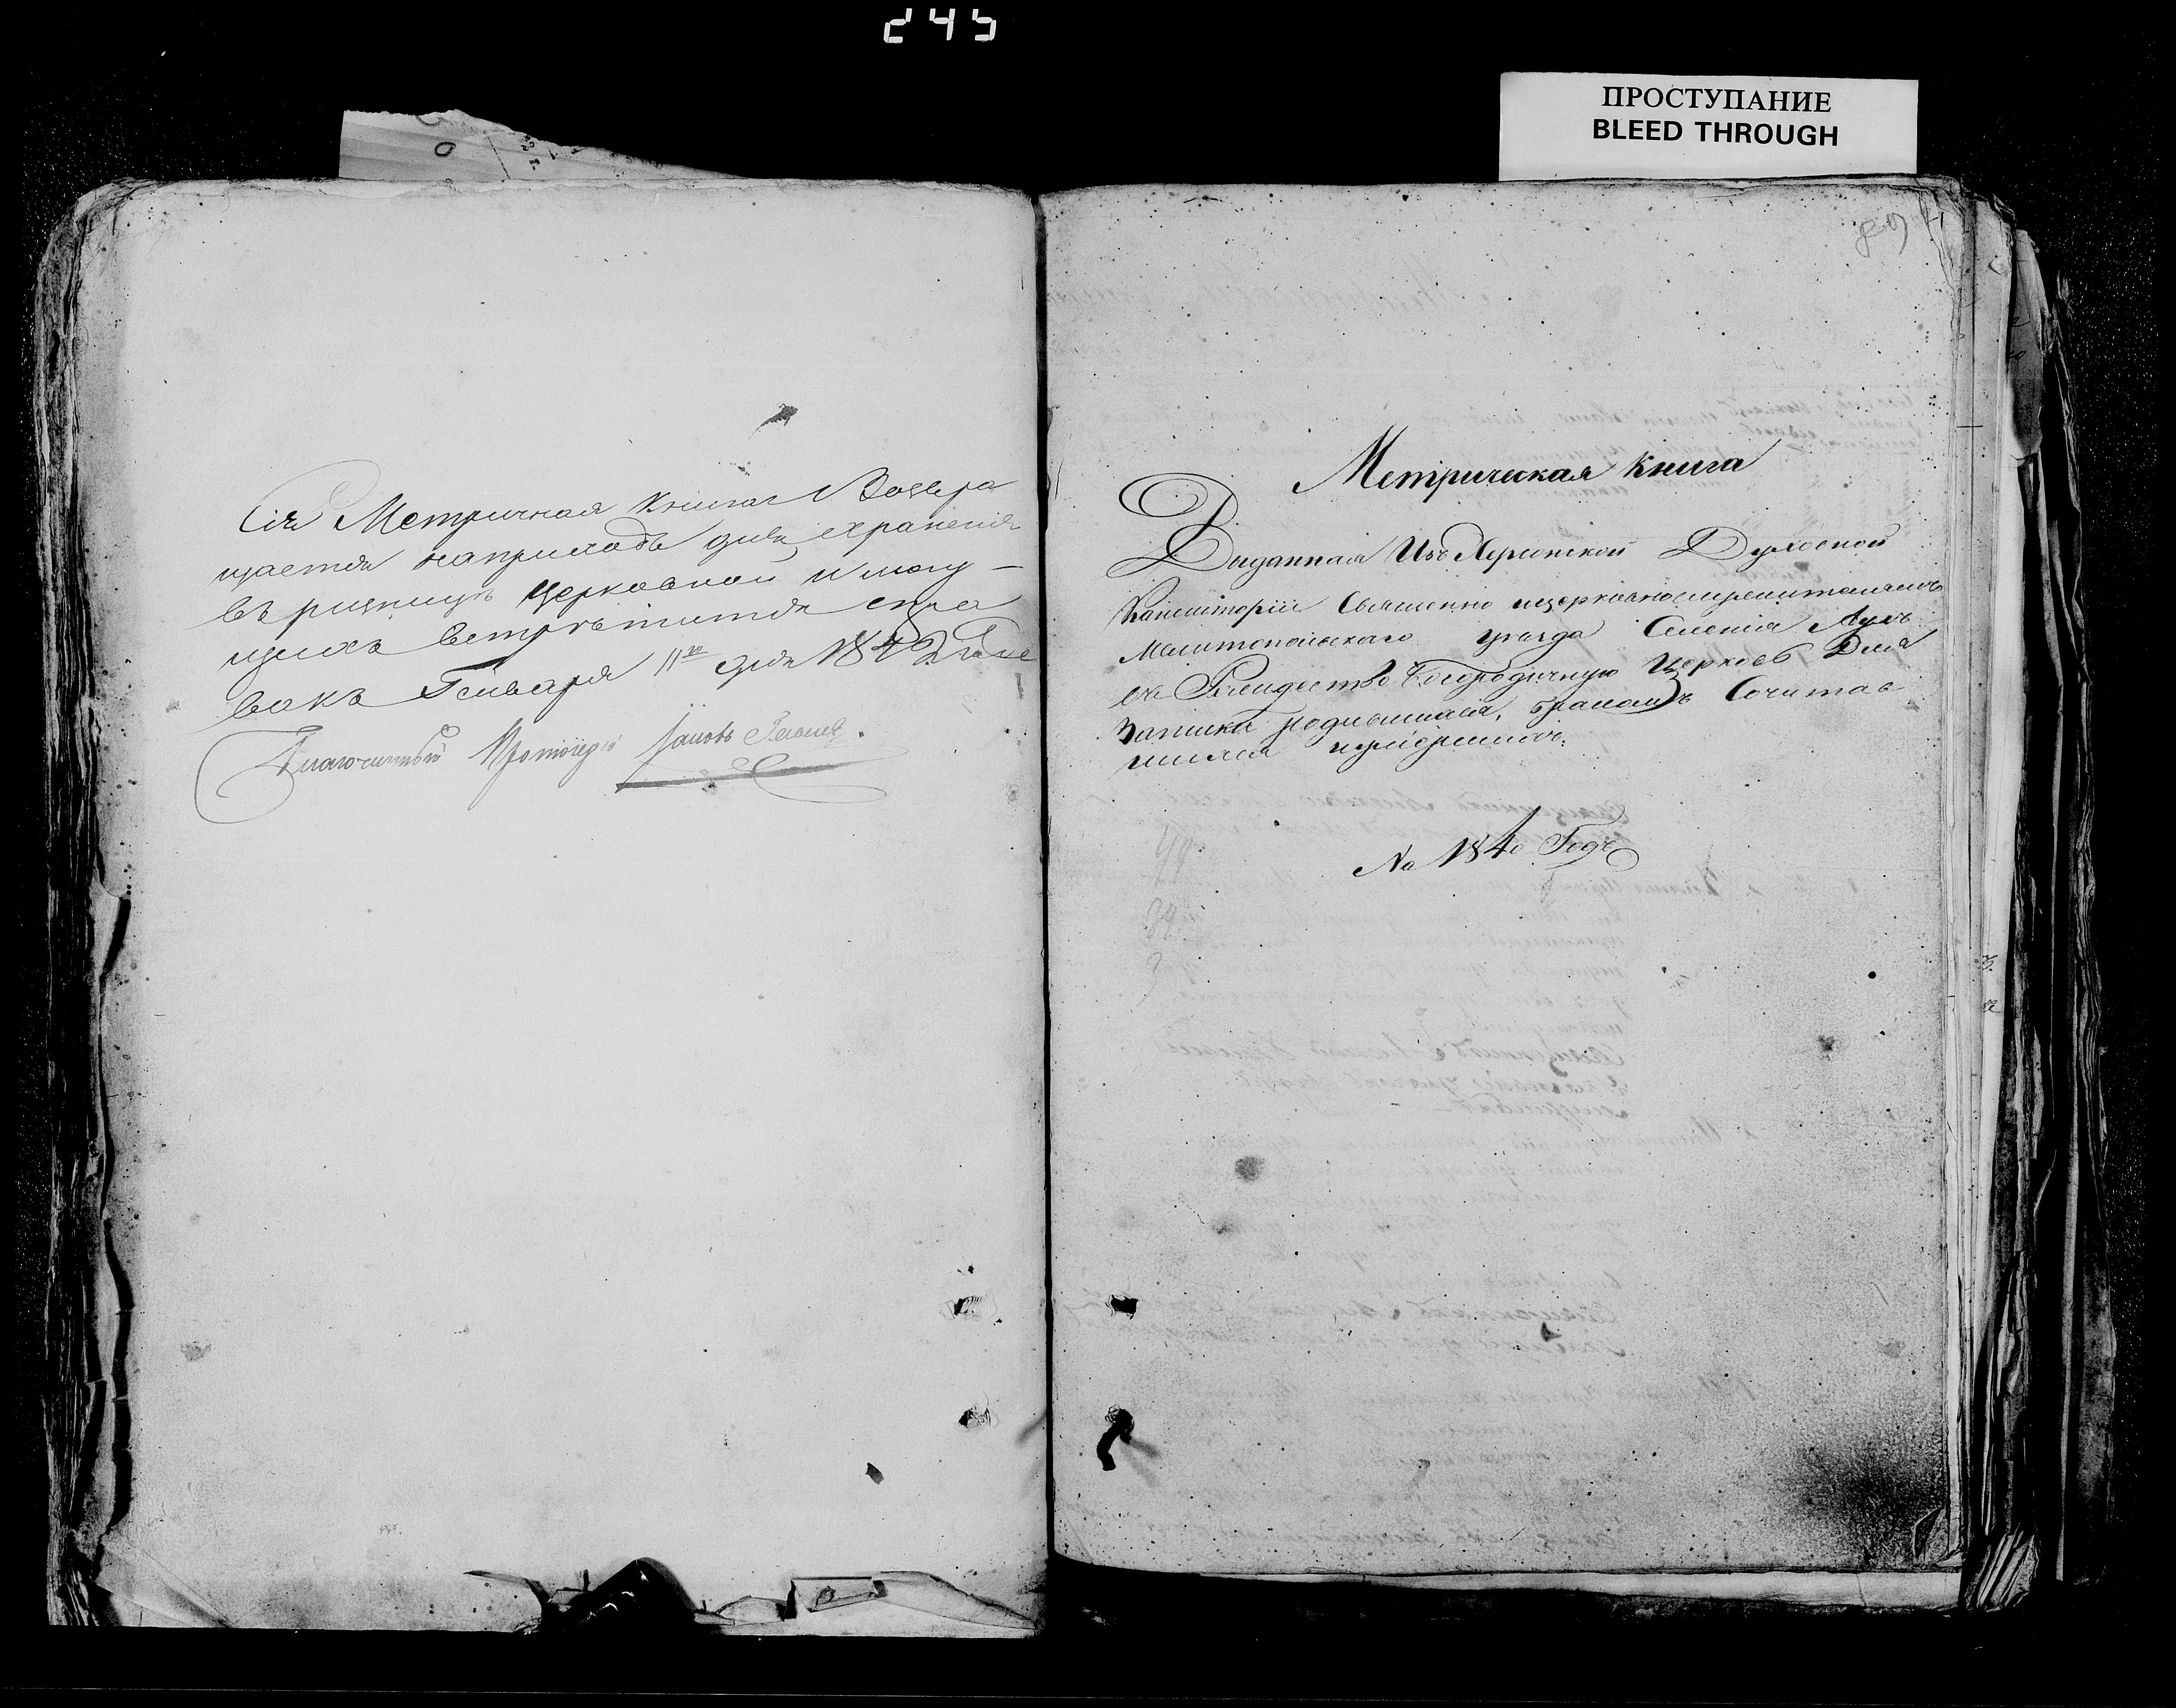 245
ПРОСТУПАНИЕ
BLEED THROUGH
Сія Метричная Книга Возвра
щается наприходъ для хранения
въ ризницѣ церковной и могу-
щихъ встрѣтится спра
вокъ Генваря 11го дня 1842 Года
Благочинный Протоіерей Іаковъ
Метрическая Книга
Выданная Изъ Херсонской Духовной
Консисторіи Священно ицерковнослужителямъ
Мелитопольскаго уезда Селенія
въ Рождество Богородичную Церковь Для
Записки родившихся, бракомъ Сочитав
шихся иумершихъ.
На 1840 Годъ